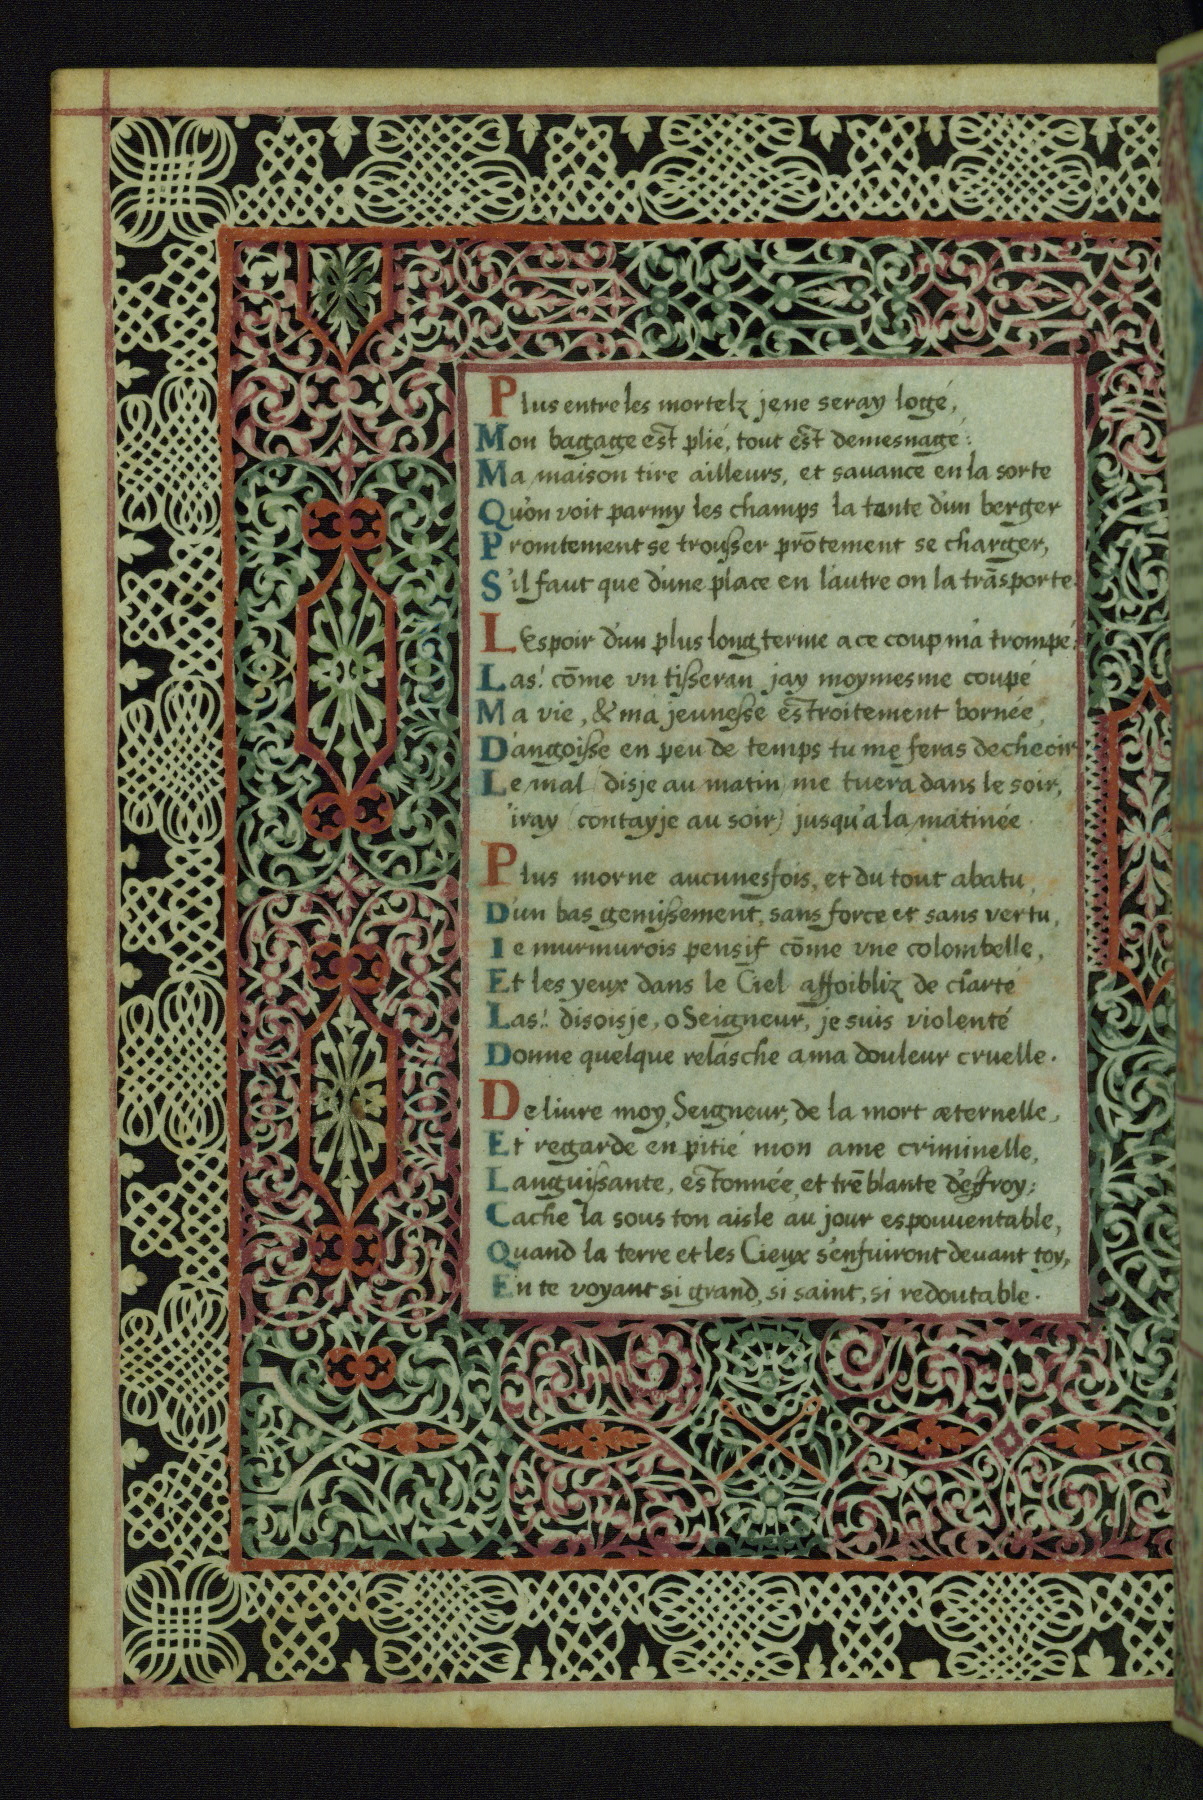 Plus entre les mortelz je ne seray logé,
Mon bagage est plié, tout est demesnagé:
Ma maison tire ailleurs, et savance en la sorte
Qu'on voit parmy les champs la tante d'un berger
Promtement se trousser prōtement se charger,
S'il faut que d'une place en l'autre on la trāsporte.
L'Espoir d'un plus long terme a ce coup m'a trompé:
Las! cōme vn tisseran jay moymesme coupé
Ma vie, & ma jeunesse estroitement bornée,
D'angoisse en peu de temps tu me feras decheoir
Le mal (disje au matin) me tuera dans le soir,
'iray (contayje au soir) jusqu'a la matinée.
Plus morne aucunesfois, et du tout abatu,
D'un bas gemissement, sans force et sans vertu,
Ie murmurois pensif cōme vne colombelle,
Et les yeux dans le Ciel affoibliz de clarté
Las! disoisje, o Seigneur, je suis violenté
Donne quelque relasche a ma douleur cruelle.
Deliure moy, Seigneur, de la mort æternelle,
Et regarde en pitié mon ame criminelle,
Languissante, estonnée, et trēblante d'effroy:
Cache la sous ton aisle au jour espouuentable,
Quand la terre et les Cieux s'enfuiront deuant toy,
En te voyant si grand, si saint, si redoutable.